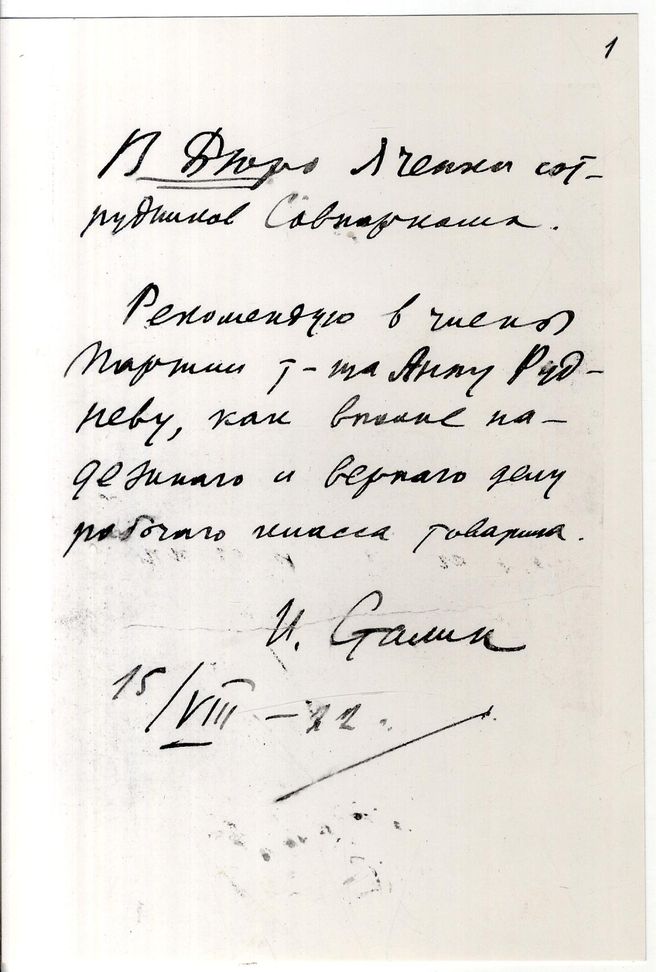 1
В Бюро Ячейки сот-
рудников Совнаркома.
Рекомендую в члены
партии т-ща Анну Руд-
неву, как вполне на-
дежнаго и вернаго делу
рабочаго класса товарища.
И. Сталин
15/VIII – 22.